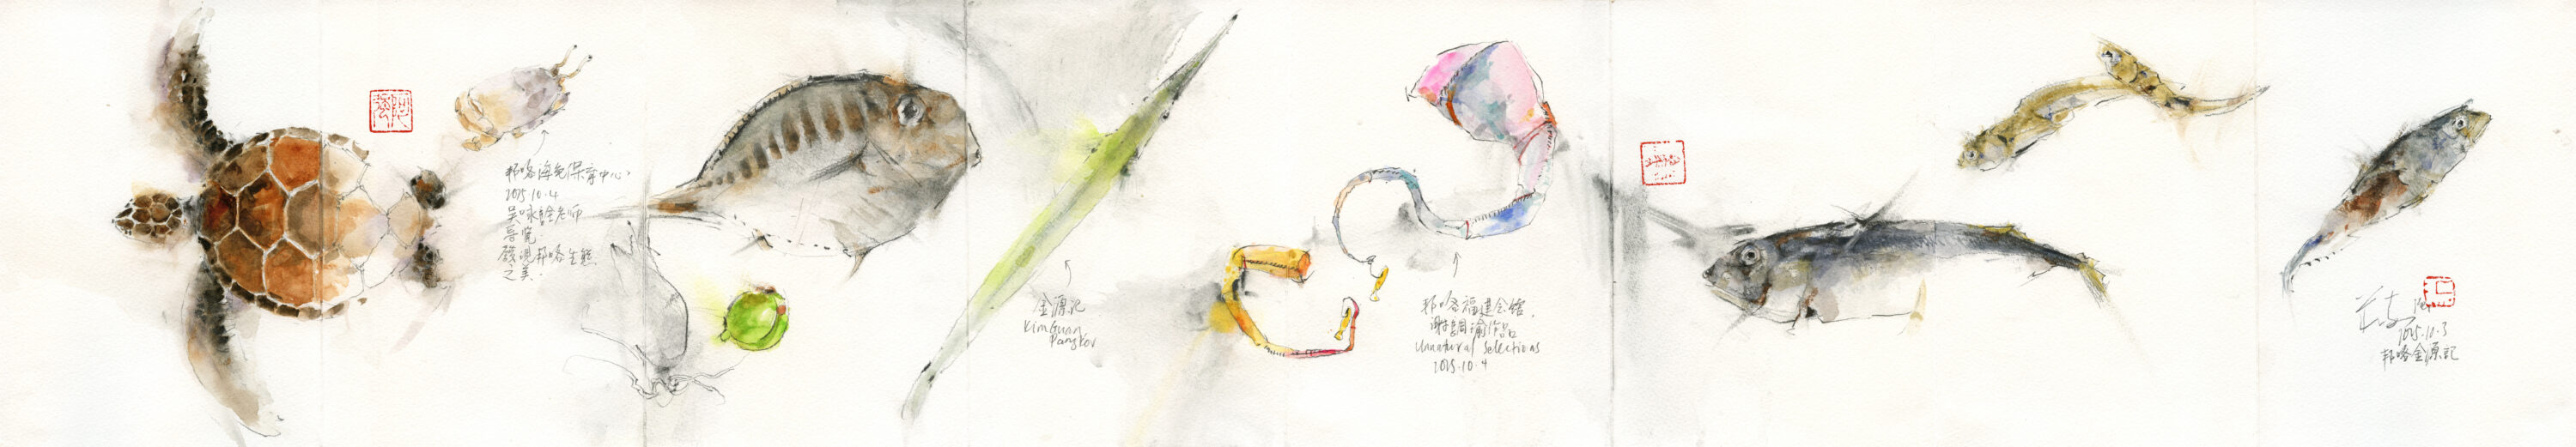 邦咯海龟保育中心
2025.10.4
吴咏詮老师
导览
发现邦咯生态
之美.
金源记
KimGuan
Pangkor
邦咯福建会馆,
谢調渝作品
Unnatural Selections
2025.10.4
2025.10.3
邦咯金源記